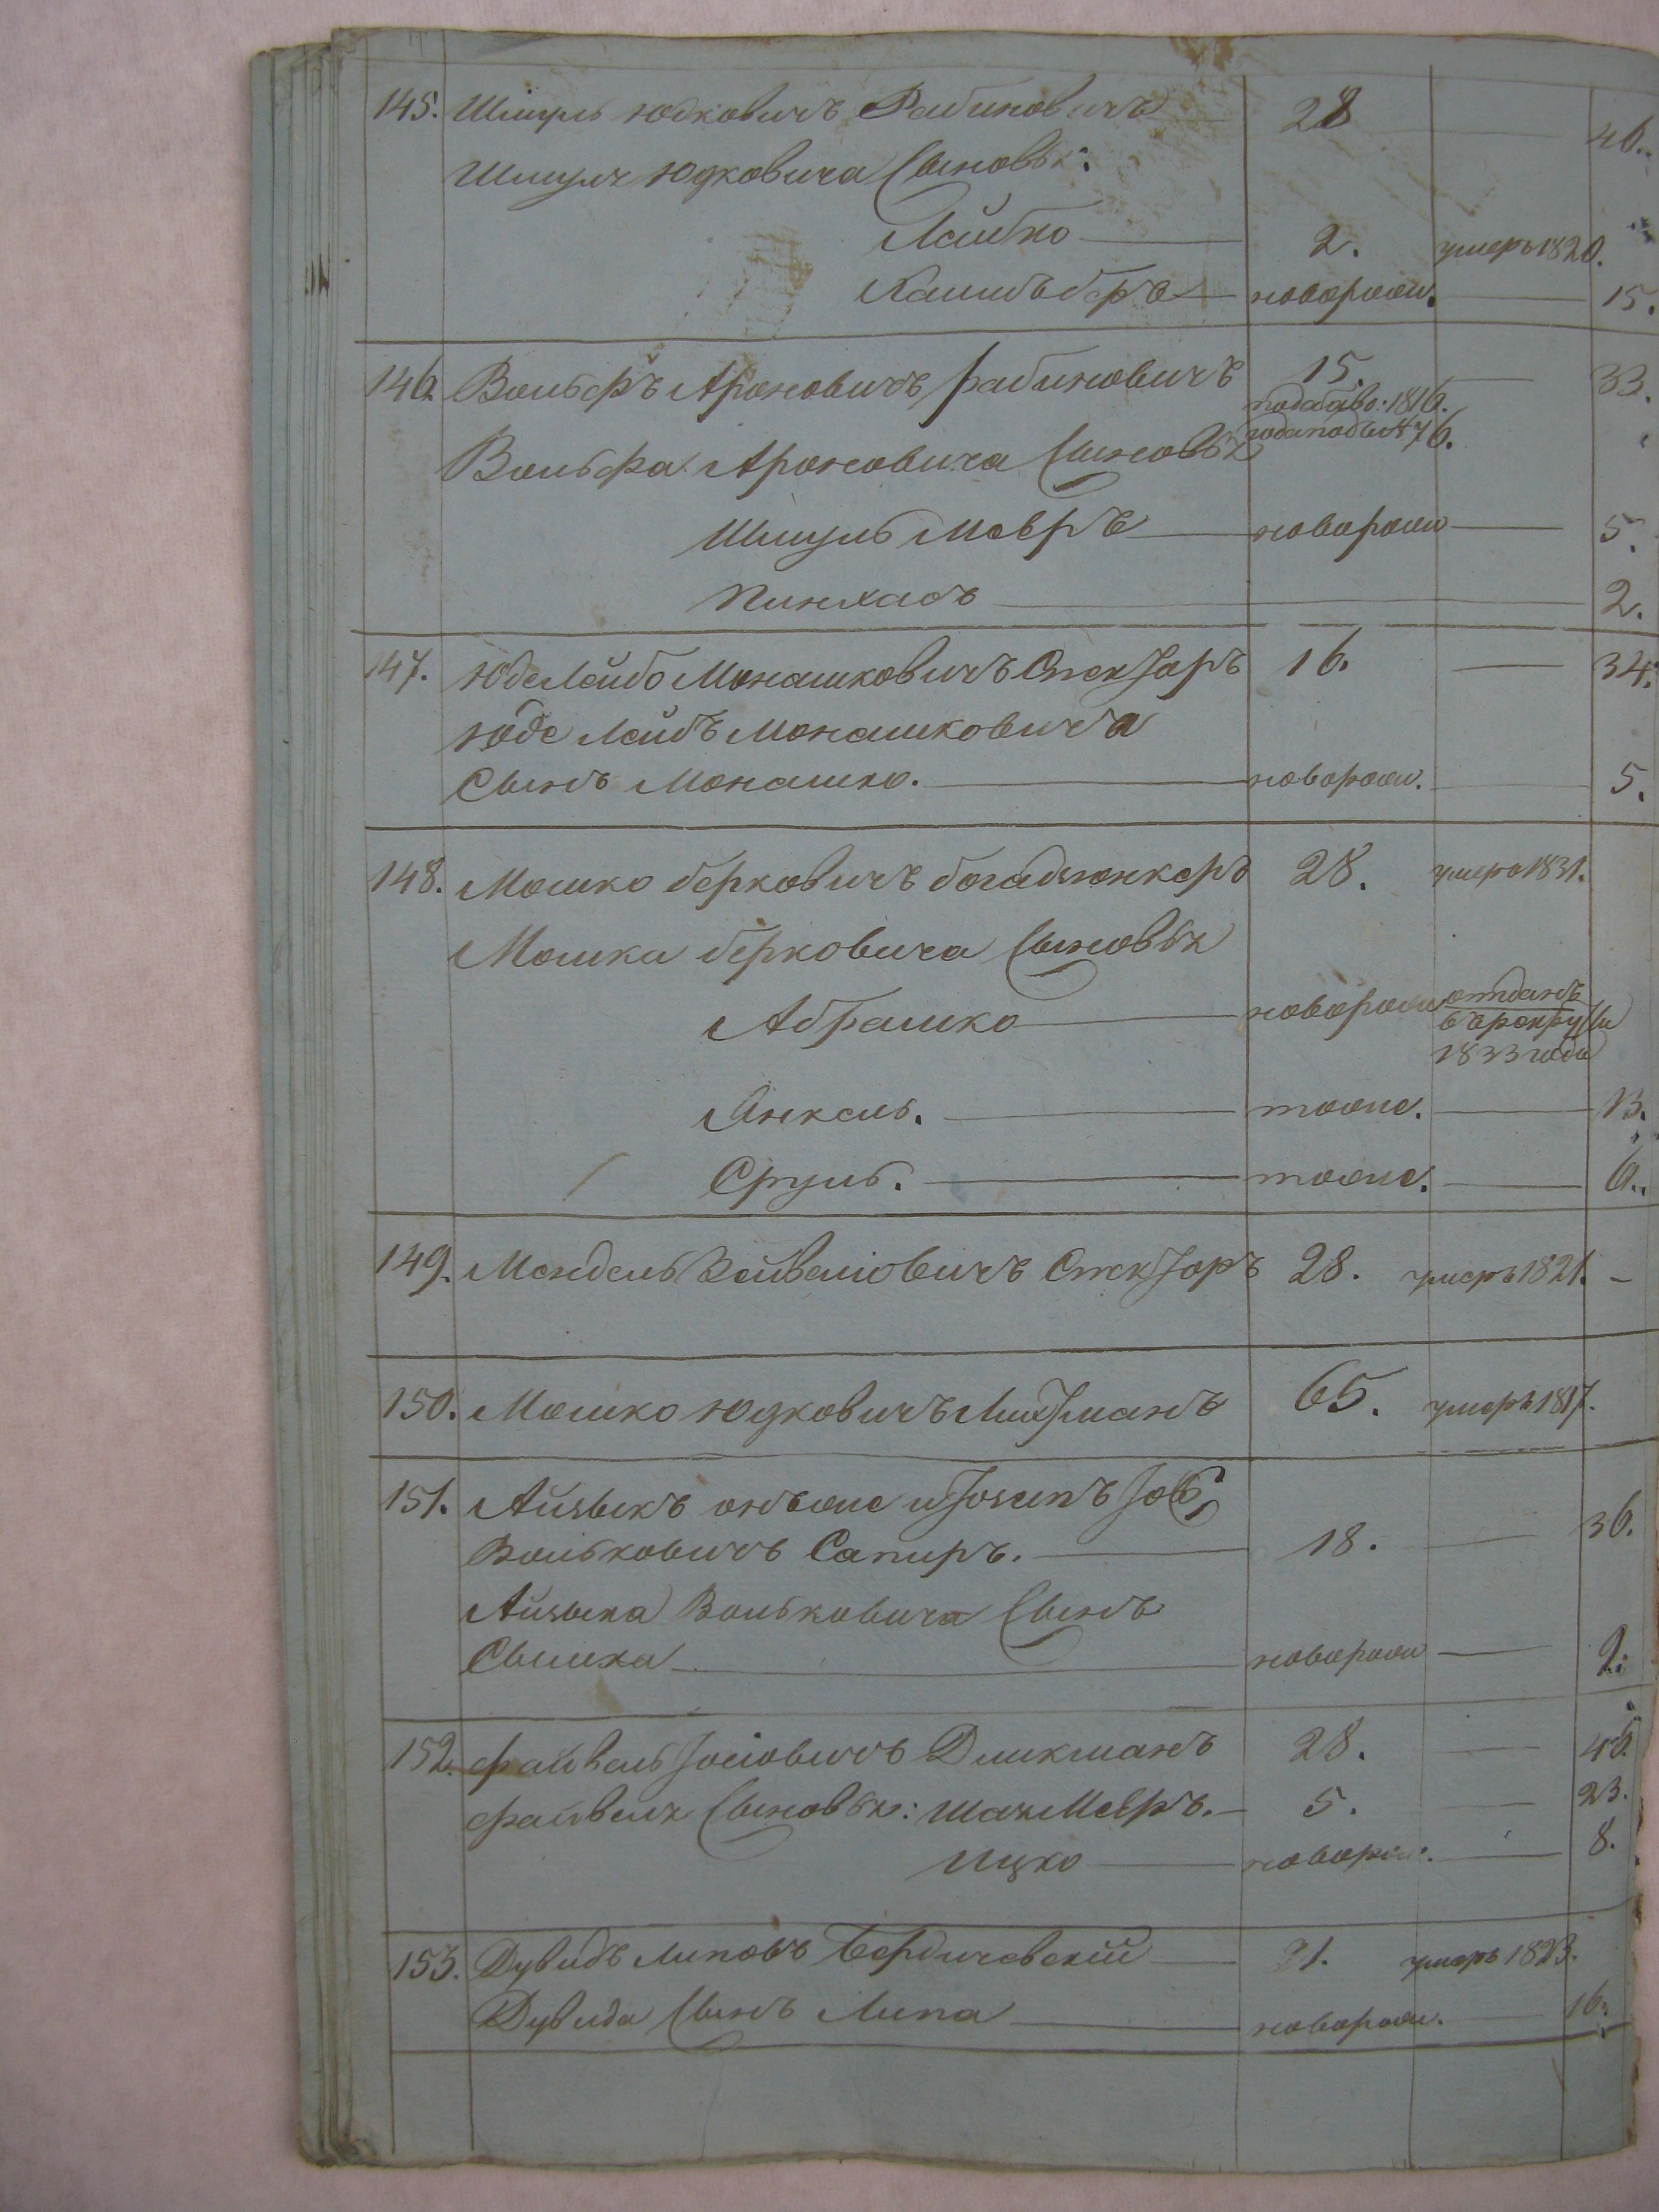 145. Шмуль Юдковичъ Рабиновичъ 28 — 46.
Шмуля Юдковича Сыновья:
Лейбко — 2. умеръ 1820.
новорож. — 15.
146. Вольфъ Ароновичъ рабиновичъ 15. — 33.
1816.
Вольфа Ароновича Сыновья №76.
Шмуль Мееръ — новорож — 5.
Пинхасъ — 2.
147. Юде Лейбъ Монашковичъ Стекляръ 16. — 34.
Юде Лейбъ Монашковича
Сынъ Монашко. — новорож. — 5.
148. Мошко берковичъ 28. умеръ 1831.
Мошка берковича Сыновья
Абрашко — новорож отданъ
въ рекруты
1833 года
Янкель. — тоже. — 13.
Сруль. — тоже. — 6.
149. Мендель Стекляръ 28. умеръ 1821. –
150. Мошко Юдковичъ 65. умеръ 1817.
151. Айзыкъ онъже и Іосипъ
Вольковичъ Сапиръ. — 18. — 36.
Айзыка Вольковича Сынъ
Сымха — новорож — 2.
152. файвель Іосіовичъ Дикманъ 28. — 46.
файвеля Сыновья: Мееръ. — 5. — 23.
Ицко — новорож. — 8.
153. Дувидъ Липовъ Бердичевскій — 21. умеръ 1823.
Дувида Сынъ Липа — новорож. — 16.